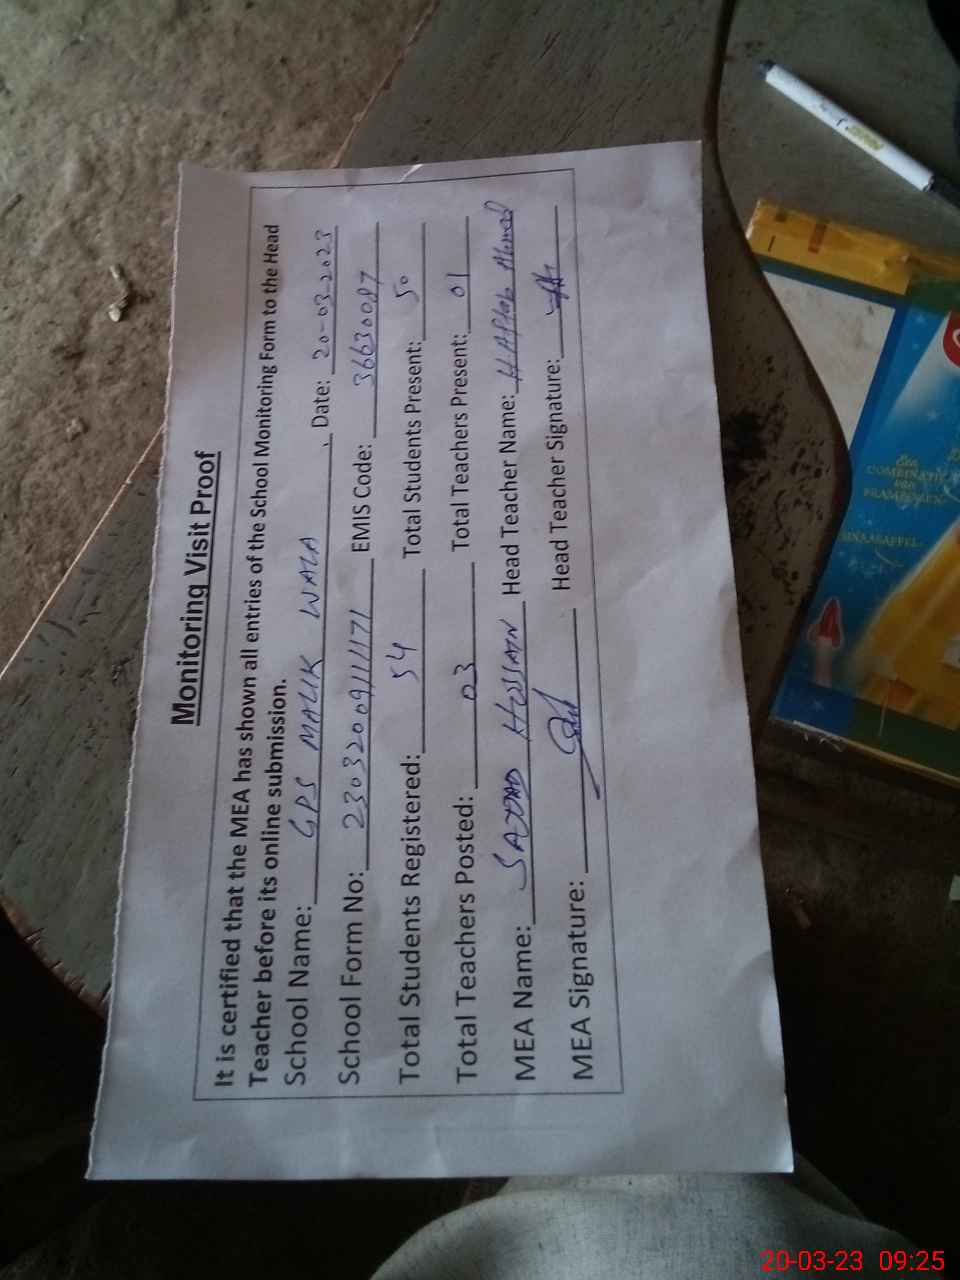 Monitoring Visit Proof
It is certified that the MEA has shown all entries of the School Monitoring Form to the Head
Teacher before its online submission.
School Name: GPS MALIK WALA , Date: 20-03-2023
School Form No: 230320091111171 EMIS Code: 36630087
Total Students Registered: 54 Total Students Present: 50
Total Teachers Posted: 03 Total Teachers Present: 01
MEA Name: SAJJAD HUSSAIN Head Teacher Name: Ahmed
MEA Signature: Head Teacher Signature:
Een
COMBINATIE
van
FRAMBOZEN
SINAASAPPEL
20-03-23 09:25